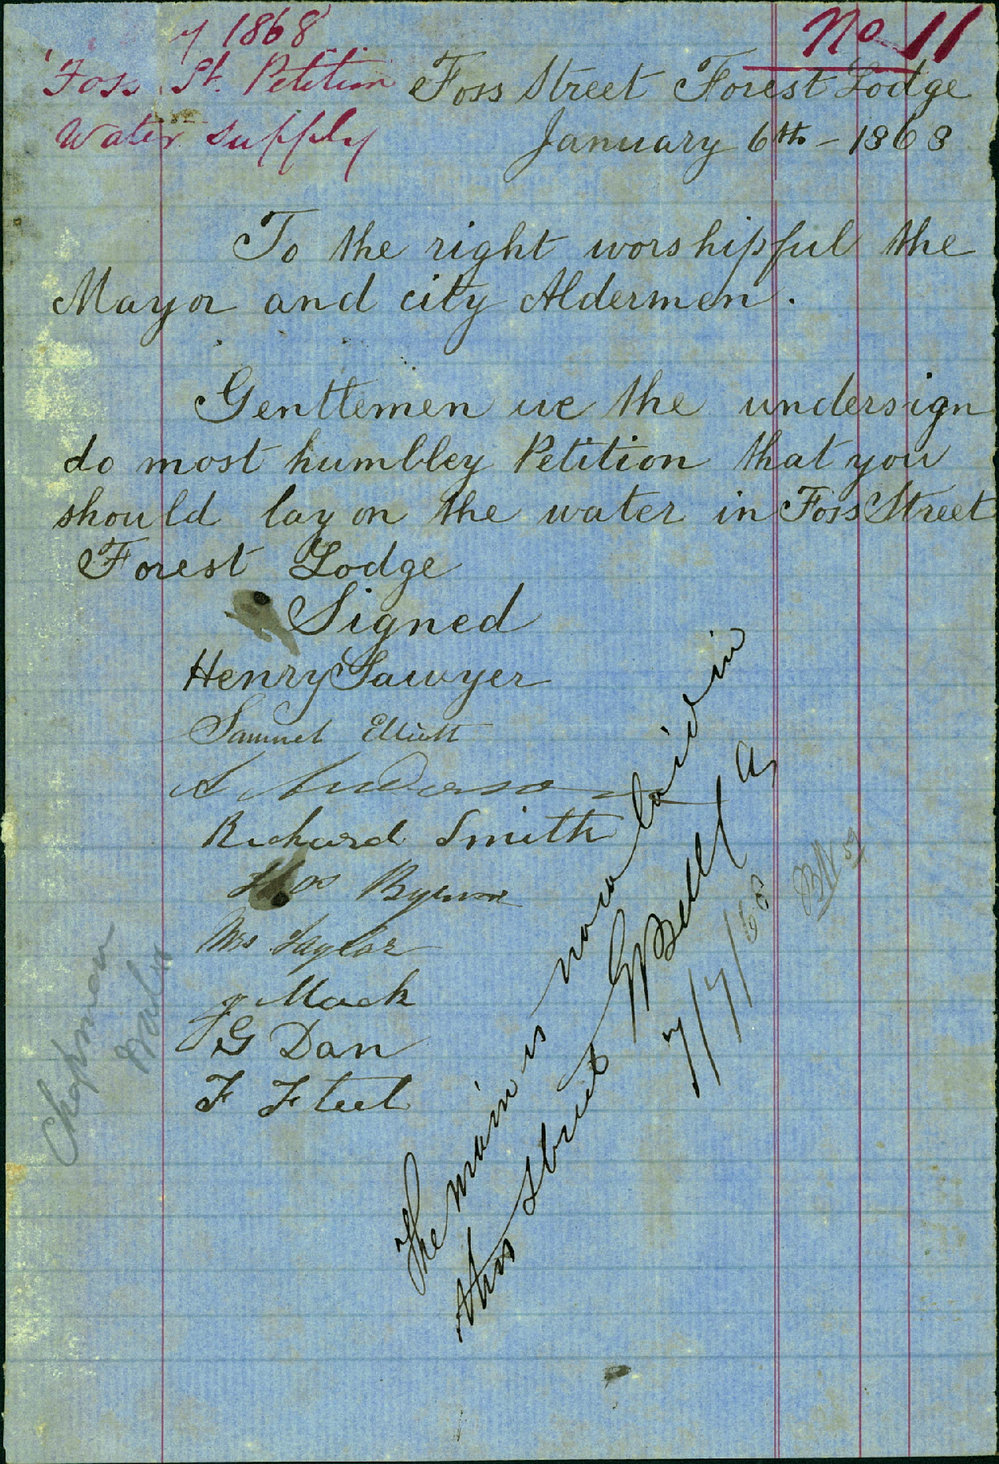 of 1868
No 11
Foss St. Petition
Water supply
Foss Street Forest Lodge
January 6th - 1868
To the right worshipful the
Mayor and city Aldermen.
Gentlemen we the undersign
do most humbley Petition that you
should lay on the water in Foss Street
Forest Lodge
Signed
Henry Sawyer
Samuel Elliott
A Anderson
Richard Smith
Thos Byrne
Mrs Taylor
J Mack
G Dan
F Fleet
The main is now laid in
this Street
7/7/68
Chapman